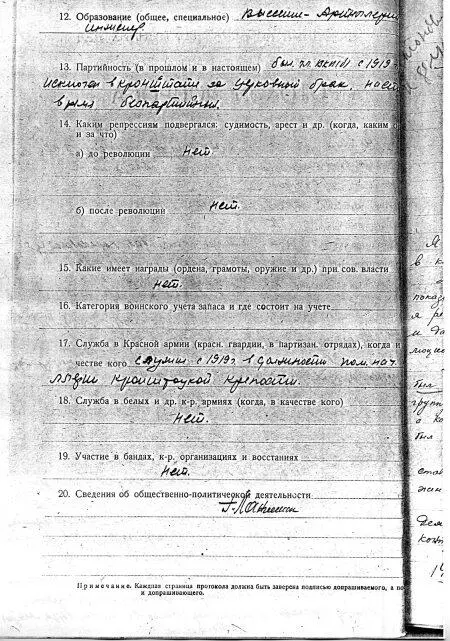 12. Образование (общее, специальное) Высшее - Артиллерий
инженер
13. Партийность (в прошлом и в настоящем) был чл. ВКП(б) с 1919
исключен в Кронштате за церковный брак, наст.
время беспартийный.
14. Каким репрессиям подвергался: судимость, арест и др. (когда, каким о
и за что)
а) до революции нет
б) после революции нет.
15. Какие имеет награды (ордена, грамоты, оружие и др.) при сов. власти
нет.
16. Категория воинского учета запаса и где состоит на учете
17. Служба в Красной армии (красн. гвардии, в партизан. отрядах), когда и
честве кого служил с 1919 г. в должности пом. нач.
Кронштадской крепости.
18. Служба в белых и др. к.-р. армиях (когда, в качестве кого)
нет.
19. Участие в бандах, к.-р. организациях и восстаниях
нет.
20. Сведения об общественно-политической деятельности
Примечание. Каждая страница протокола должна быть заверена подписью допрашиваемого, а по
и допрашивающего.
Я
в к
показ
я ре
и да
был
групп
о ко
был